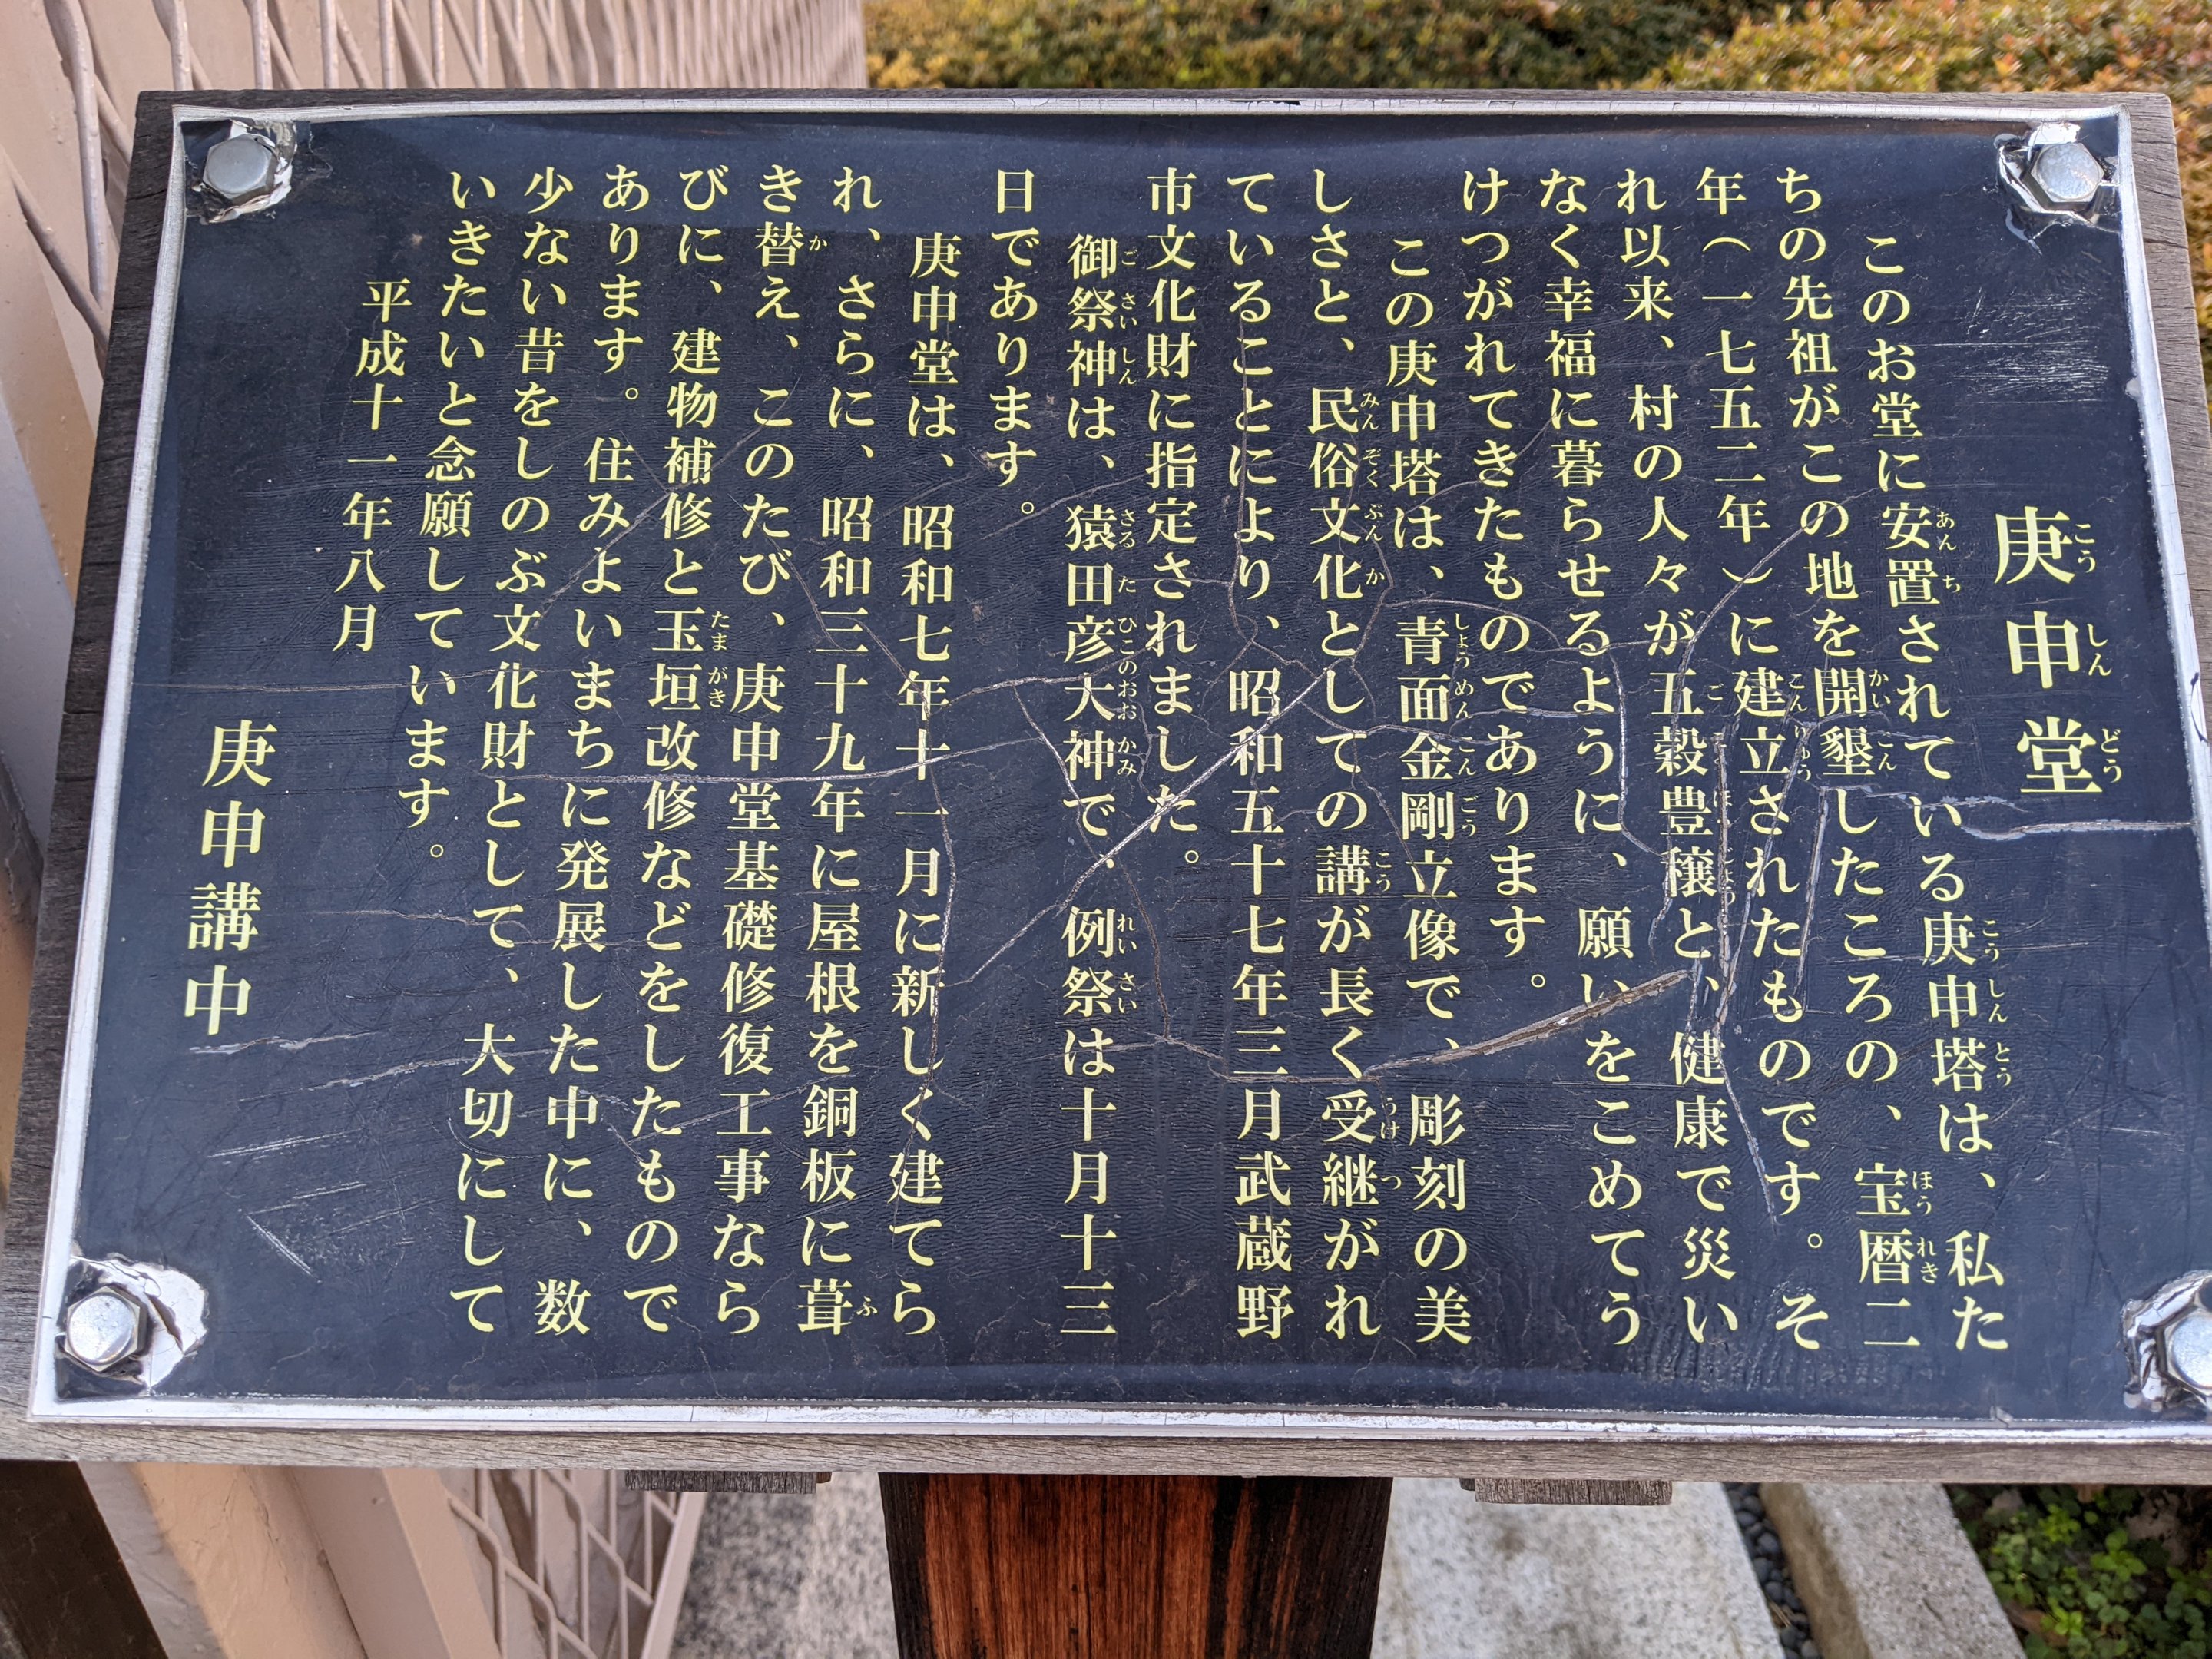 庚申堂
このお堂に安置されている庚申塔は、私た
ちの先祖がこの地を開墾したころの、宝暦二
年（一七五二年）に建立されたものです。そ
れ以来、村の人々が五穀豊穣と、健康で災い
なく幸福に暮らせるように、願いをこめてう
けつがれてきたものであります。
この庚申塔は、青面金剛立像で、彫刻の美
しさと、民俗文化としての講が長く受継がれ
ていることにより、昭和五十七年三月武蔵野
市文化財に指定されました。
御祭神は、猿田彦大神で、例祭は十月十三
日であります。
庚申堂は、昭和七年十一月に新しく建てら
れ、さらに、昭和三十九年に屋根を銅板に葺
き替え、このたび、庚申堂基礎修復工事なら
びに、建物補修と玉垣改修などをしたもので
あります。住みよいまちに発展した中に、数
少ない昔をしのぶ文化財として、大切にして
いきたいと念願しています。
平成十一年八月
庚申講中